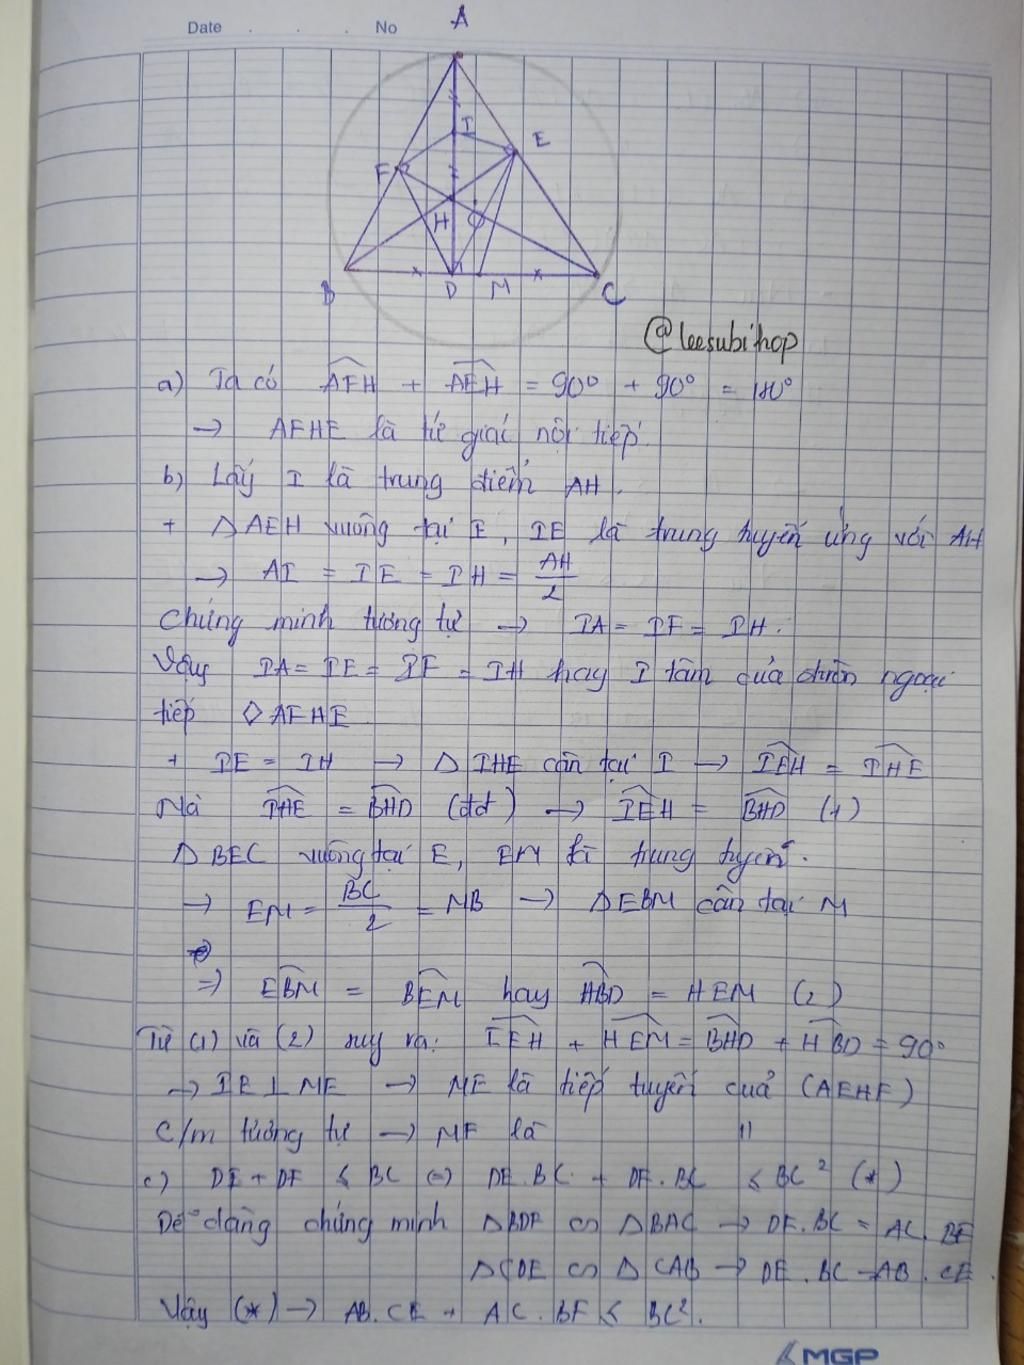 Date . . . No
A
I
E
F
H
O
B
D
M
C
@leesubihop
a) Ta có AFH + AEH = 90° + 90° = 180°
→ AFHE là tứ giác nội tiếp.
b) Lấy I là trung điểm AH.
+ ΔAEH vuông tại E, IE là trung tuyến ứng với AH
→ AI = IE = IH = AH/2
Chứng minh tương tự → IA = IF = IH.
Vậy IA = IE = IF = IH hay I tâm của đường ngoại
tiếp ◇AFHE
+ IE = IH → Δ IHE cân tại I → IEH = IHE
Mà IHE = BHD (đđ) → IEH = BHD (1)
ΔBEC vuông tại E, EM là trung tuyến.
→ EM = BC/2 = MB → ΔEBM cân tại M
⇒ EBM = BEM hay HBD = HEM (2)
Từ (1) và (2) suy ra: IEH + HEM = BHD + HBD = 90°
→ IE ⊥ ME → ME là tiếp tuyến của (AEHF)
C/m tương tự → MF là "
c) DE + DF ≤ BC ⇔ DE.BC + DF.BC ≤ BC² (*)
Dễ dàng chứng minh ΔBDF ∽ ΔBAC → DF.BC = AC.BF
ΔCDE ∽ ΔCAB → DE.BC = AB.CE.
Vậy (*) → AB.CE + AC.BF ≤ BC².
MGP